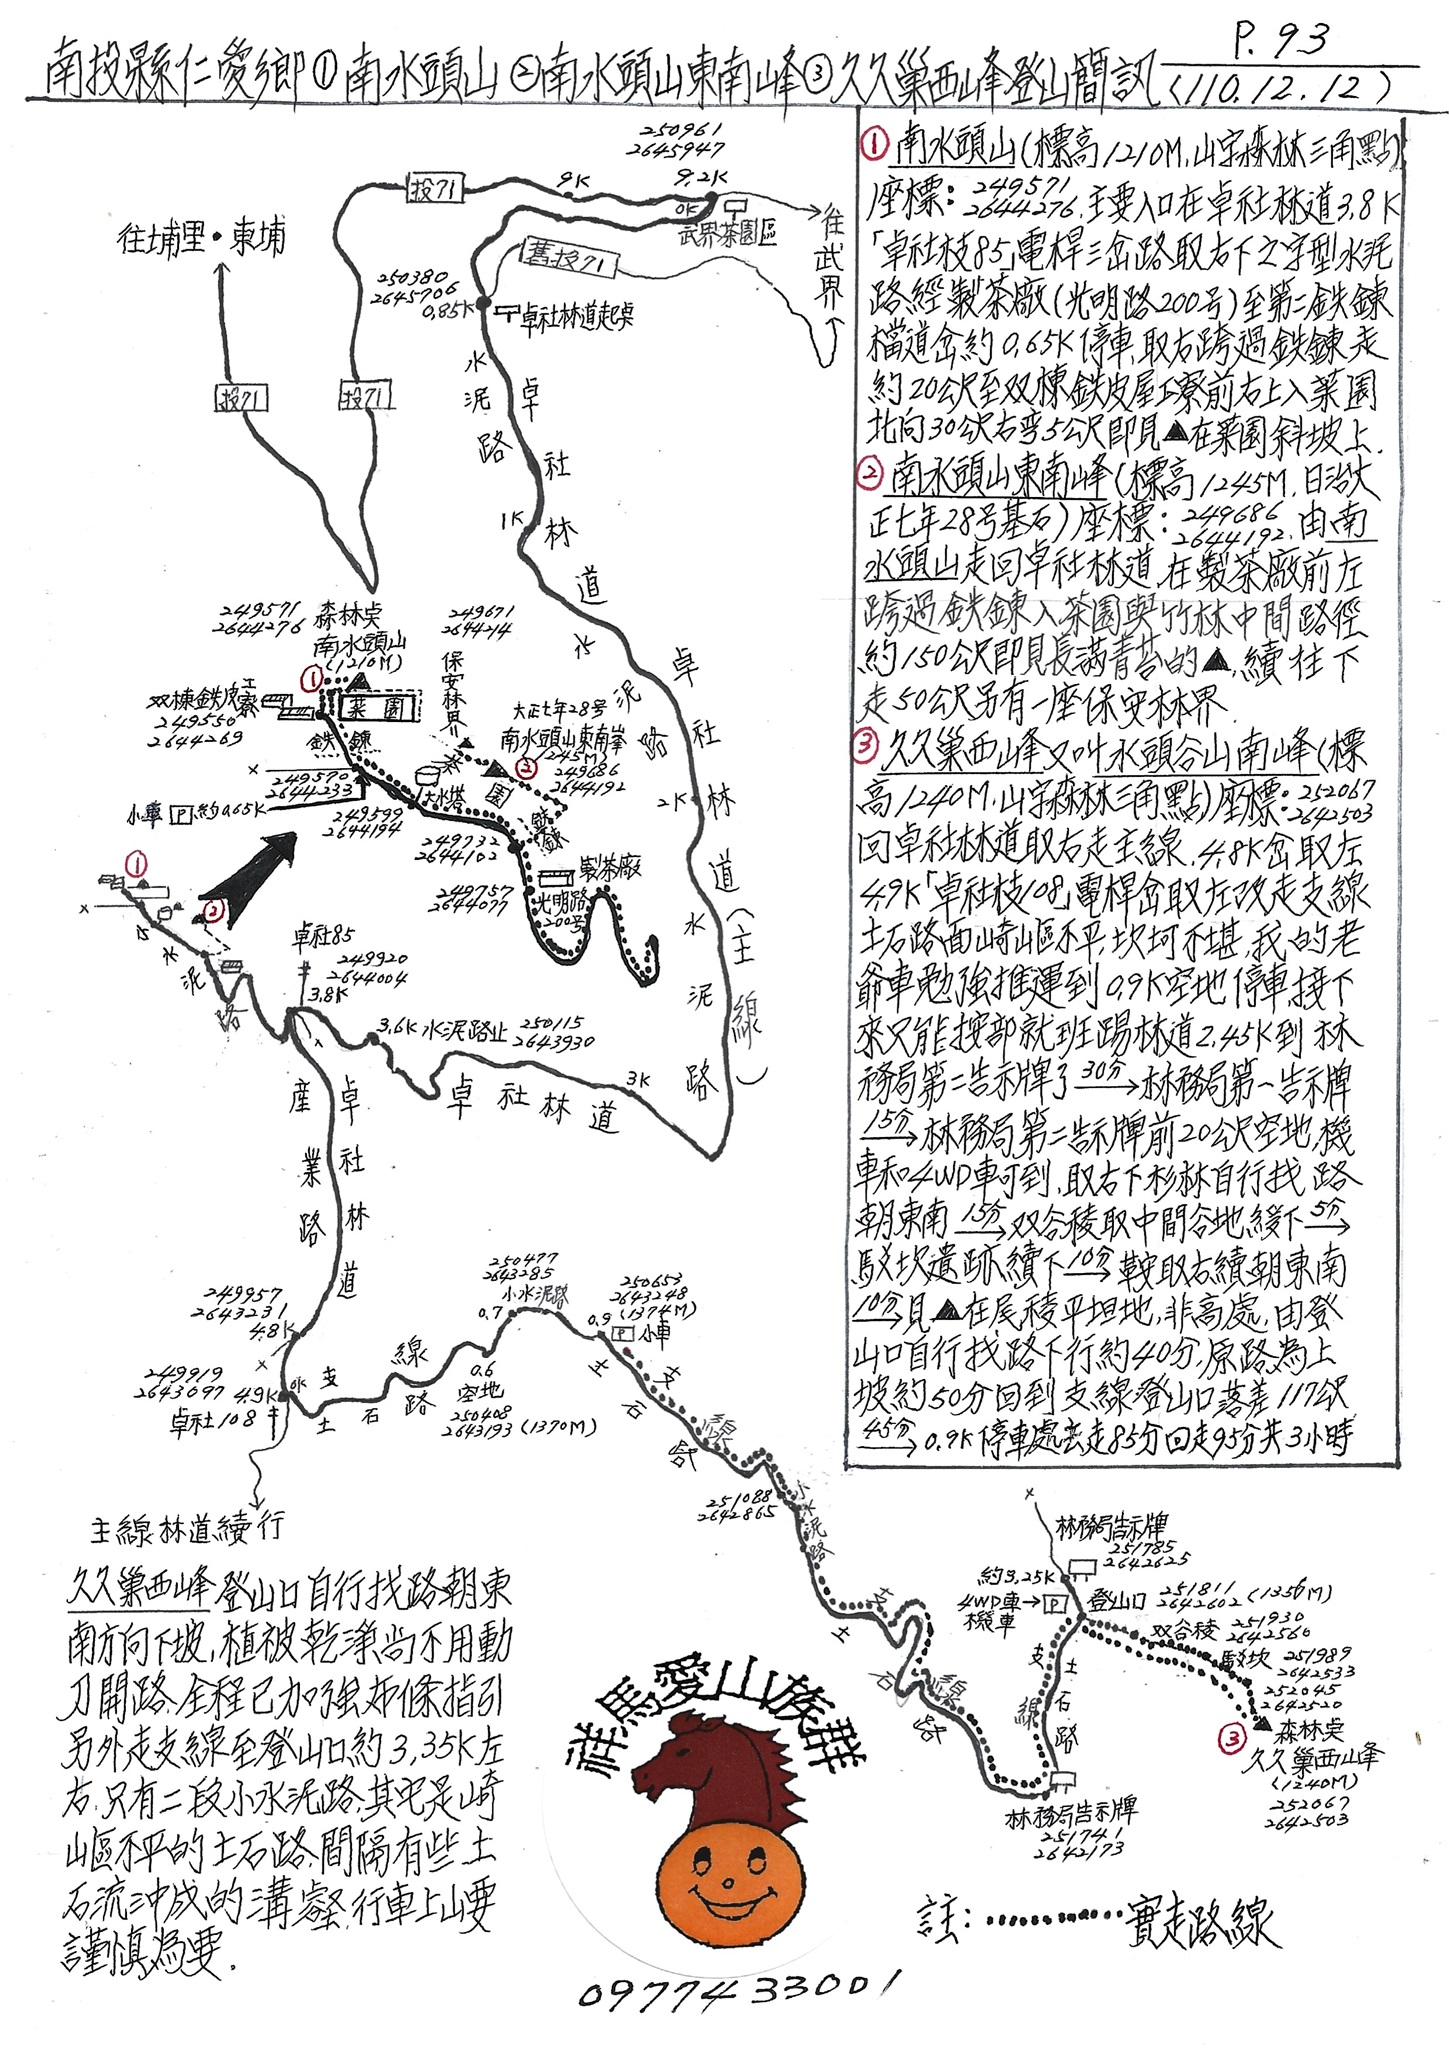 P.93
南投縣仁愛鄉①南水頭山②南水頭山東南峰③久久巢西峰登山簡訊(110.12.12)
①南水頭山(標高1210M.山字森林三角點)
座標:249571
2644276.主要入口在卓社林道3.8K
「卓社枝85」電桿三岔路取右下之字型水泥
路經製茶廠(光明路200号)至第二鉄鍊
檔道岔約0.65K停車.取右跨過鉄鍊走
約20公尺至双棟鉄皮屋工寮前右上入菜園
北向30公尺右弯5公尺即見▲在菜園斜坡上.
②南水頭山東南峰(標高1245M.日治大
正七年28号基石)座標:249686
2644192.由南
水頭山走回卓社林道.在製茶廠前左
跨過鉄鍊入茶園與竹林中間路徑
約150公尺即見長滿青苔的▲,續往下
走50公尺另有一座保安林界.
③久久巢西峰又叫水頭谷山南峰(標
高1240M.山字森林三角點)座標:252067
2642503
回卓社林道取右走主線.4.8K岔取左
4.9K「卓社枝108」電桿岔取左改走支線
土石路面崎嶇不平,坎坷不堪,我的老
爺車勉強推運到0.9K空地停車接下
來只能按部就班踢林道2.45K到林
務局第二告示牌了30分→林務局第一告示牌
15分→林務局第二告示牌前20公尺空地,機
車和4WD車可到.取右下杉林自行找路
朝東南15分→双谷稜取中間谷地緩下5分→
駁坎遺跡續下10分→鞍取右續朝東南
10分→見▲在尾稜平坦地,非高處.由登
山口自行找路下行約40分,原路為上
坡約50分回到支線登山口落差117公尺
45分→0.9K停車處去走85分回走95分共3小時
250961
2645947
投71
9K
9.2K
0K
武界茶園區
往武界
往埔里·東埔
舊投71
250380
2645706
0.85K
卓社林道起點
水泥路
卓社林道
投71
投71
1K
水泥路
卓社林道(主線)
2K
水泥路
249571
2644276
森林點
南水頭山
(1210M)
①
249671
2644214
保安林界
双棟鉄皮工寮
249550
2644269
菜園
鉄鍊
大正七年28号
南水頭山東南峯
(1245M)
②
249686
2644192
茶園
水塔
249570
2644233
小車P約0.65K
249599
2644194
鉄鍊
249732
2644102
製茶廠
249757
2644077
光明路
200号
①
②
水泥路
卓社85
249920
2644004
3.8K
3.6K水泥路止
250115
2643930
3K
卓社林道
產業路
卓社林道
249957
2643231
4.8K
249919
2643097
4.9K
0K
卓社108
支線
土石路
0.6
空地
250408
2643193(1370M)
250477
2643285
小水泥路
0.7
250653
2643248
(1374M)
0.9
P小車
支線
土石路
251088
2642865
小水泥路
支線
土石路
主線林道續行
林務局告示牌
251785
2642625
約3.25K
4WD車→P
機車
登山口
251811
2642602(1356M)
双谷稜
251930
2642560
駁坎
251989
2642533
252045
2642520
支線
土石路
③
森林點
久久巢西峰
(1240M)
252067
2642503
林務局告示牌
251741
2642173
久久巢西峰登山口自行找路朝東
南方向下坡,植被乾淨尚不用動
刀開路.全程已加強布條指引
另外走支線至登山口約3.35K左
右.只有二段小水泥路.其它是崎
嶇不平的土石路.間隔有些土
石流沖成的溝壑.行車上山要
謹慎為要.
祥馬愛山族群
0977433001
註:············實走路線